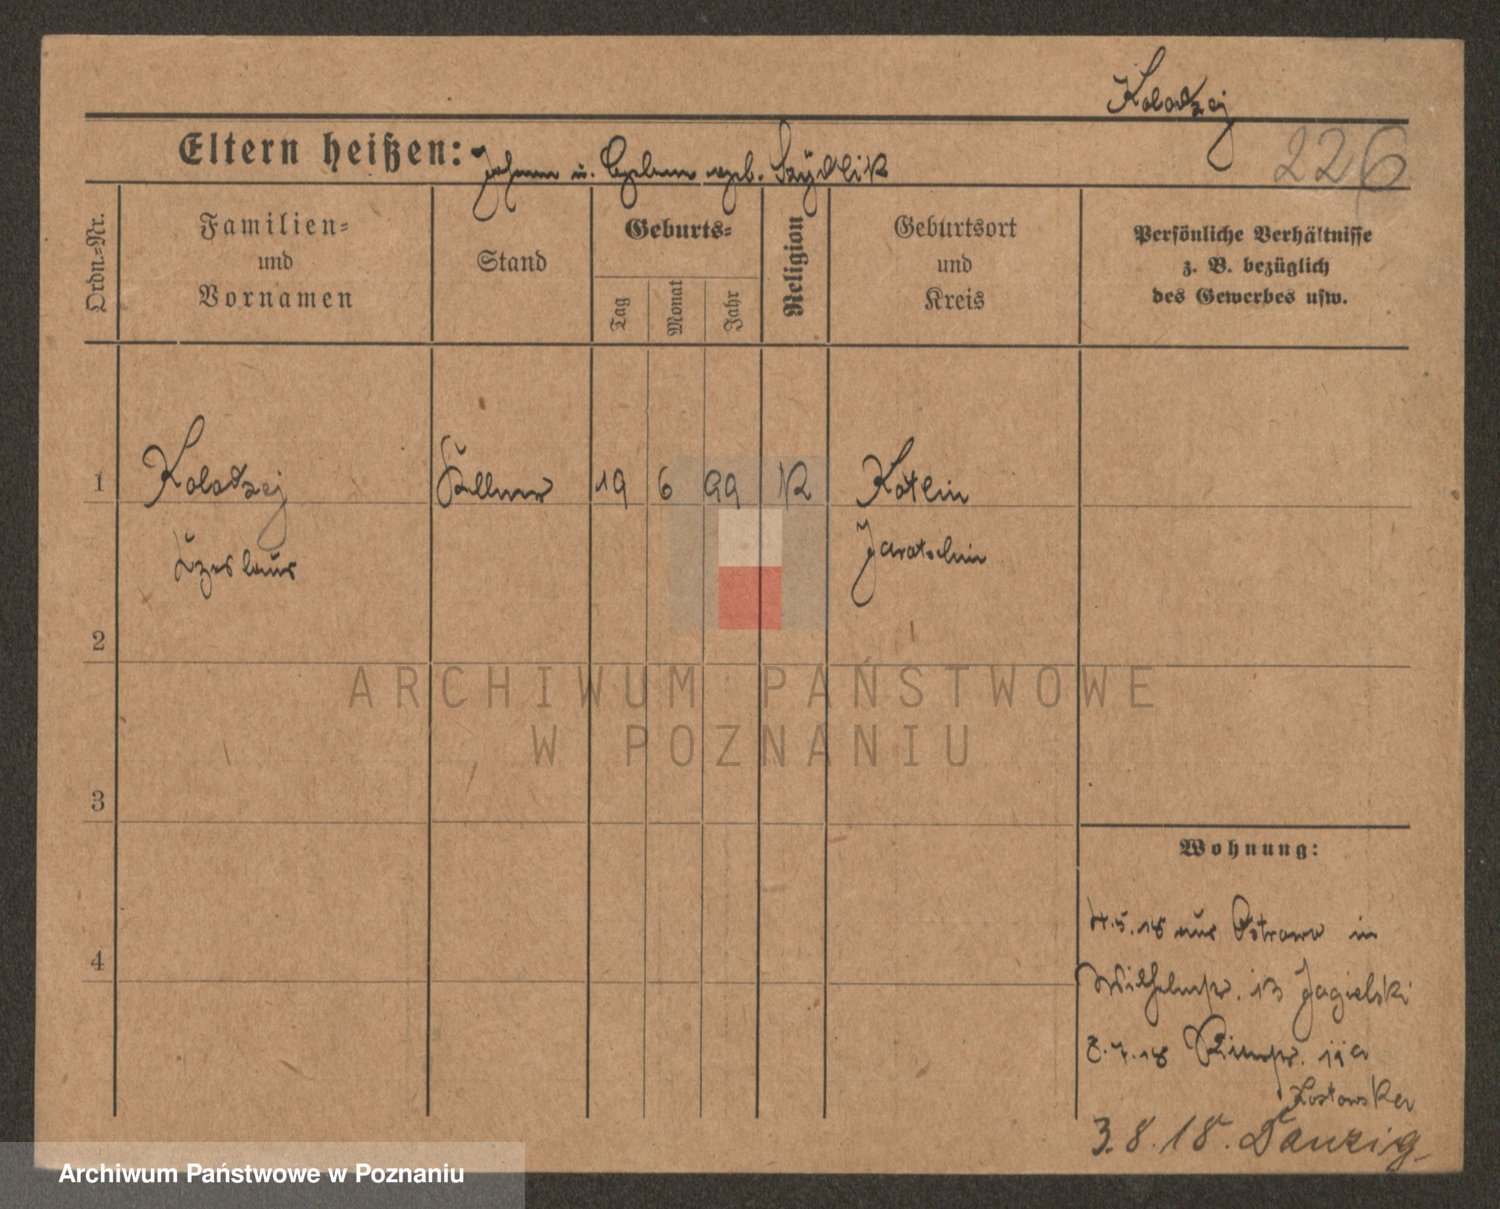 Kolodzej
Eltern heißen: Johann u. geb. Szydlik
226
Ordn.-Nr.
Familien- und Vornamen
Stand
Geburts-
Tag
Monat
Jahr
Religion
Geburtsort und Kreis
Persönliche Verhältnisse z. B. bezüglich des Gewerbes usw.
1
Kolodzej
Kellner
19
6
99
K
Kotlin
Czeslaus
Jarotschin
2
3
4
Wohnung:
4.5.18 aus Ostrowo in
Wilhelmstr. 13 Jagielski
8.7.18
3.8.18. Danzig.
ARCHIWUM PAŃSTWOWE
W POZNANIU
Archiwum Państwowe w Poznaniu